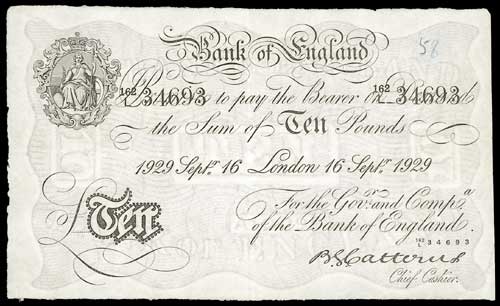 Bank of England
58
162/L 34693 162/L 34693
Promise to pay the Bearer on Demand
the Sum of Ten Pounds
1929 Septr. 16 London 16 Septr. 1929
For the Govr. and Compa.
£Ten of the Bank of England
162/L 34693
B G Catterns
Chief Cashier.